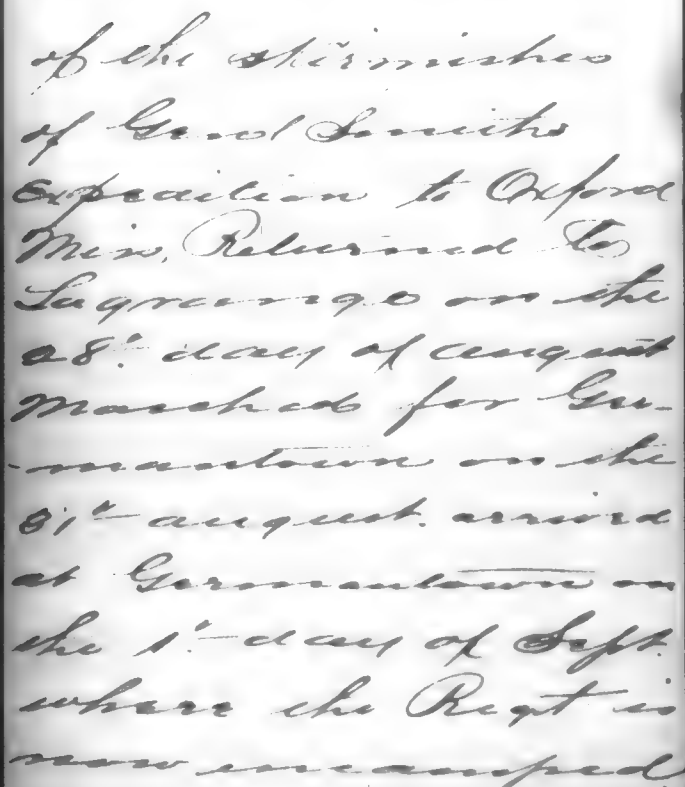 of the skirmishes
of Genl Smiths
Expedition to Oxford
Miss, Returned to
Lagrange on the
28th day of august
Marched for Ger-
-mantown on the
31st august. arrived
at Germantown on
the 1st day of Sept.
where the Regt is
now encamped